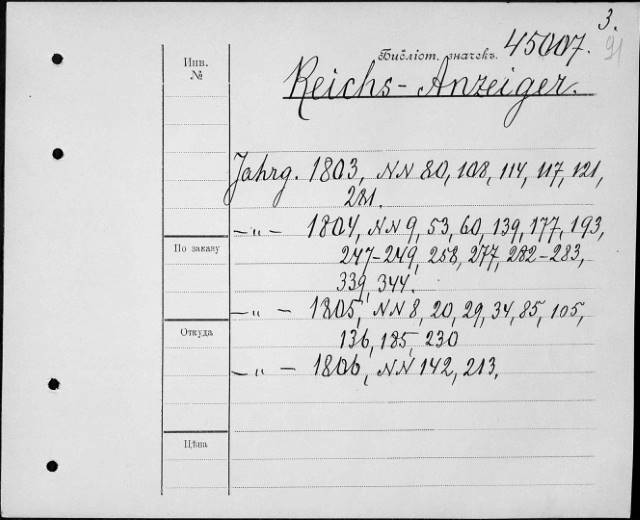 3.
91
Библіот. значекъ. 45007.
Инв.
№
Reichs-Anzeiger.
Jahrg. 1803, NN 80, 108, 114, 117, 121,
281.
—„— 1804, NN 9, 53, 60, 139, 177, 193,
247-249, 258, 277, 282-283,
339, 344.
—„— 1805, NN 8, 20, 29, 34, 85, 105,
136, 185, 230
—„— 1806, NN 142, 213.
По заказу
Откуда
Цѣна